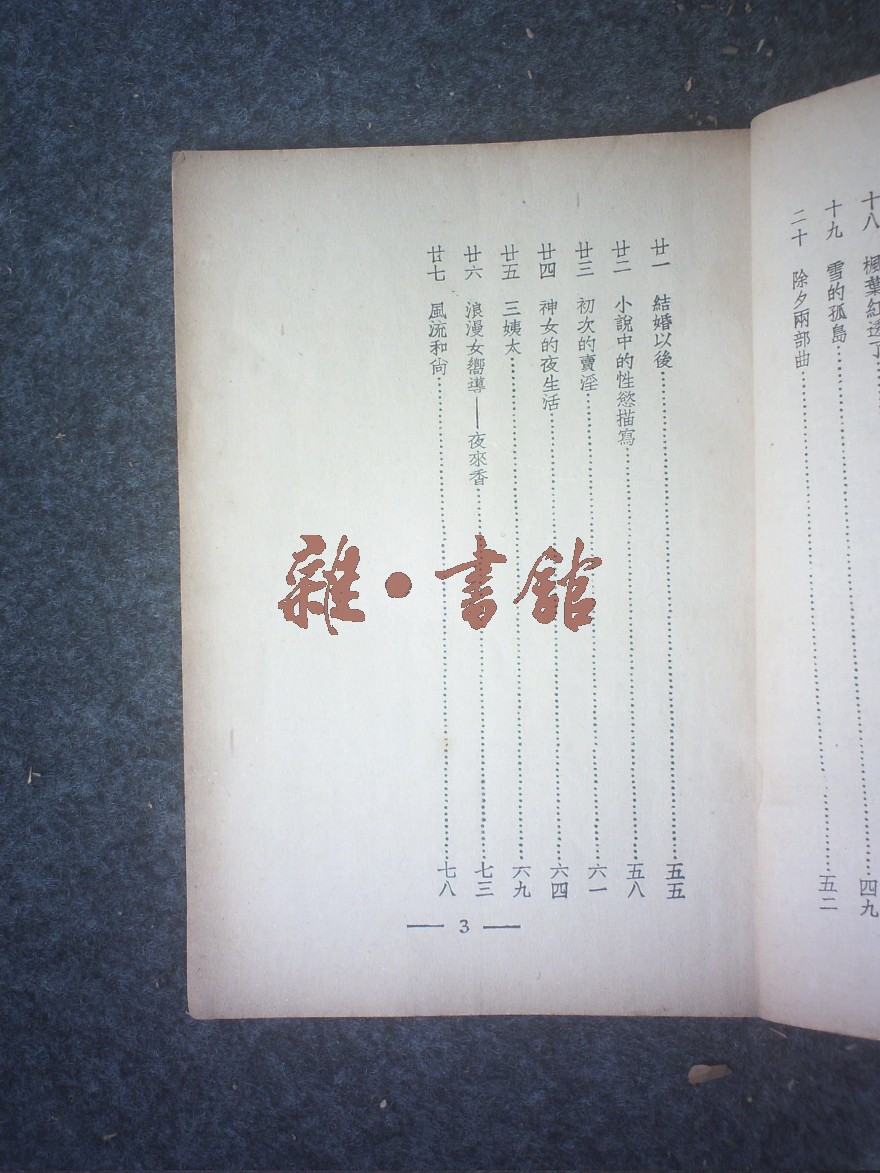 十八 楓葉紅透了
四九
十九 雪的孤島
二十 除夕兩部曲……五二
廿一 結婚以後……五五
廿二 小說中的性慾描寫……五八
廿三 初次的賣淫……六一
廿四 神女的夜生活……六四
廿五 三姨太……六九
廿六 浪漫女嚮導——夜來香……七三
廿七 風流和尙……七八
— 3 —
雜·書館